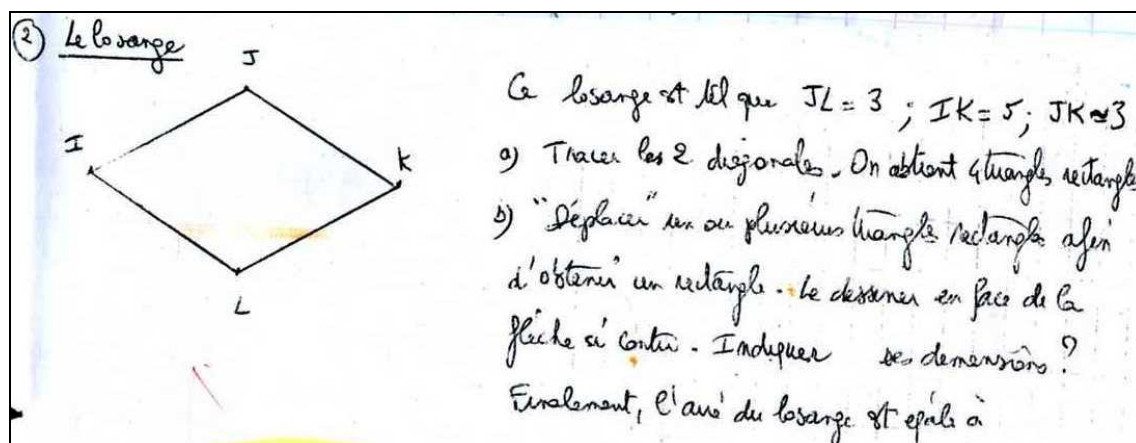 ② Le losange
J
I
K
L
Ce losange est tel que JL = 3 ; IK = 5 ; JK ≃ 3
a) Tracer les 2 diagonales. On obtient 4 triangles rectangles
b) "Déplacer" un ou plusieurs triangles rectangles afin
d'obtenir un rectangle. Le dessiner en face de la
flèche ci contre. Indiquer ses dimensions ?
Finalement, l'aire du losange est égale à